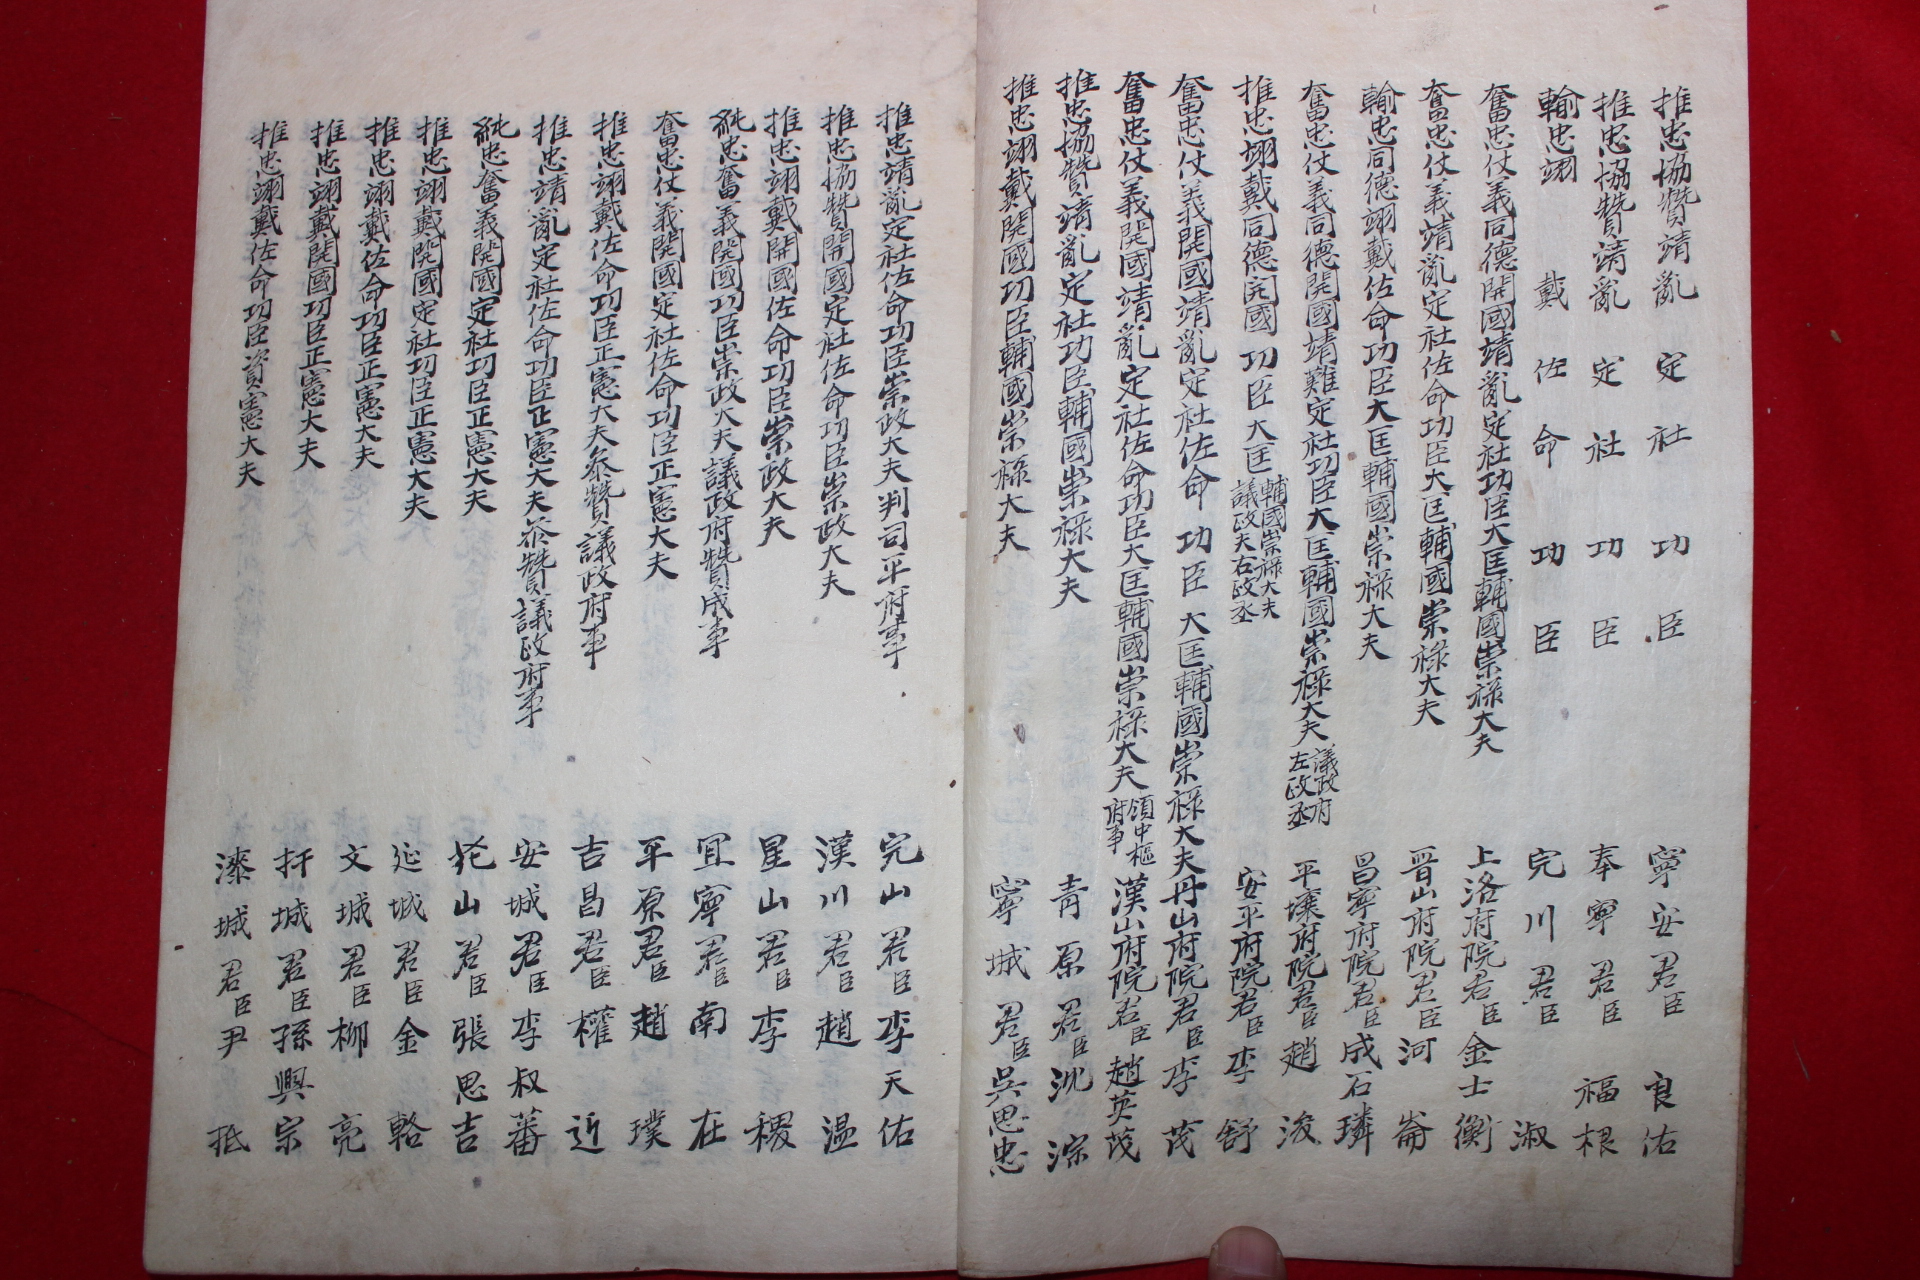 推忠協贊靖亂定社功臣 寧安君臣良佑
推忠協贊靖亂定社功臣 奉寧君臣福根
輸忠翊戴佐命功臣 完川君臣淑
奮忠仗義同德開國靖亂定社功臣大匡輔國崇祿大夫 上洛府院君臣金士衡
奮忠仗義靖亂定社佐命功臣大匡輔國崇祿大夫 晋山府院君臣河崙
輸忠同德翊戴佐命功臣大匡輔國崇祿大夫 昌寧府院君臣成石璘
奮忠仗義同德開國靖難定社功臣大匡輔國崇祿大夫議政府左政丞 平壤府院君臣趙浚
推忠翊戴同德開國功臣大匡輔國崇祿大夫議政夫右政丞 安平府院君臣李舒
奮忠仗義開國靖亂定社佐命功臣大匡輔國崇祿大夫丹山府院君臣李茂
奮忠仗義開國靖亂定社佐命功臣大匡輔國崇祿大夫領中樞府事漢山府院君臣趙英茂
推忠協贊靖亂定社功臣輔國崇祿大夫 青原君臣沈淙
推忠翊戴開國功臣輔國崇祿大夫 寧城君臣吳思忠
推忠靖亂定社佐命功臣崇政大夫判司平府事 完山君臣李天佑
推忠協贊開國定社佐命功臣崇政大夫 漢川君臣趙温
推忠翊戴開國佐命功臣崇政大夫 星山君臣李稷
純忠奮義開國功臣崇政大夫議政府贊成事 宜寧君臣南在
奮忠仗義開國定社佐命功臣正憲大夫 平原君臣趙璞
推忠翊戴佐命功臣正憲大夫叅贊議政府事 吉昌君臣權近
推忠靖亂定社佐命功臣正憲大夫叅贊議政府事 安城君臣李叔蕃
純忠奮義開國定社功臣正憲大夫 山君臣張思吉
推忠翊戴開國定社功臣正憲大夫 延城君臣金輅
推忠翊戴佐命功臣正憲大夫 文城君臣柳亮
推忠翊戴開國功臣正憲大夫 城君臣孫興宗
推忠翊戴佐命功臣資憲大夫 漆城君臣尹抵